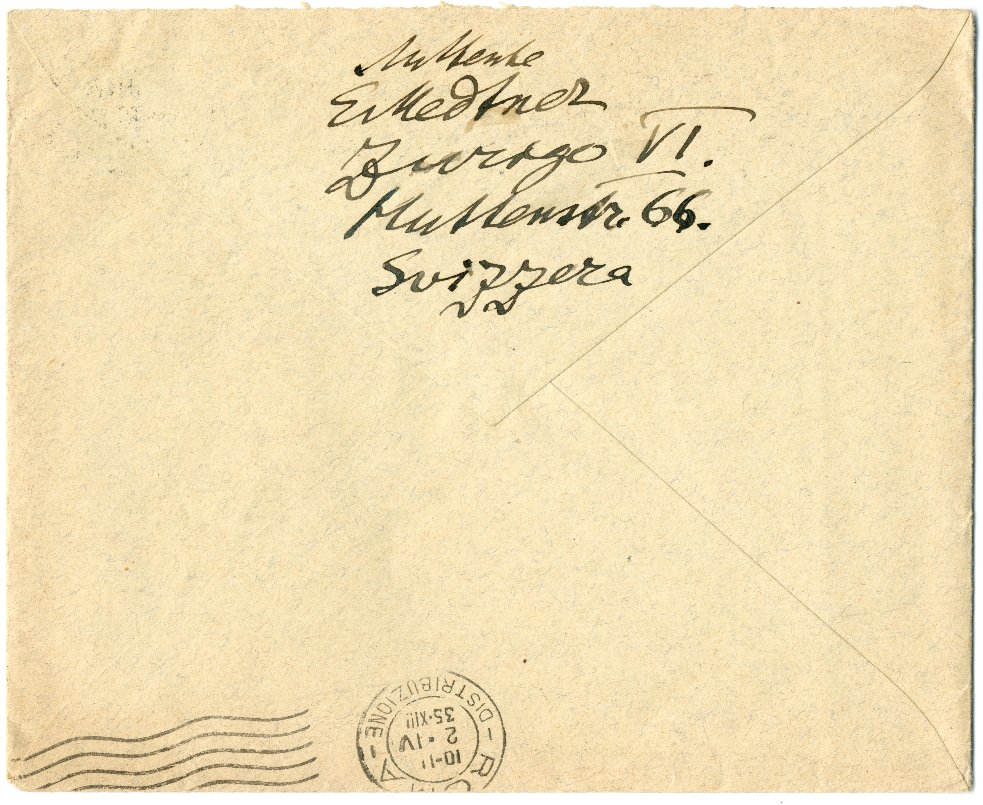 Mittente
E Medtner
Zurigo VI.
Huttenstr. 66.
Svizzera
ROMA
- DISTRIBUZIONE -
10-11
2 • IV
35•XIII